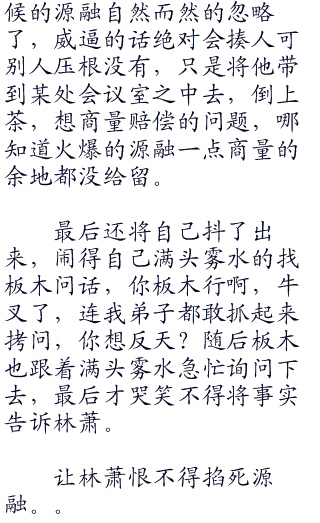 候的源融自然而然的忽略
了，威逼的话绝对会揍人可
别人压根没有，只是将他带
到某处会议室之中去，倒上
茶，想商量赔偿的问题，哪
知道火爆的源融一点商量的
余地都没给留。
最后还将自己抖了出
来，闹得自己满头雾水的找
板木问话，你板木行啊，牛
叉了，连我弟子都敢抓起来
拷问，你想反天？随后板木
也跟着满头雾水急忙询问下
去，最后才哭笑不得将事实
告诉林萧。
让林萧恨不得掐死源
融。。